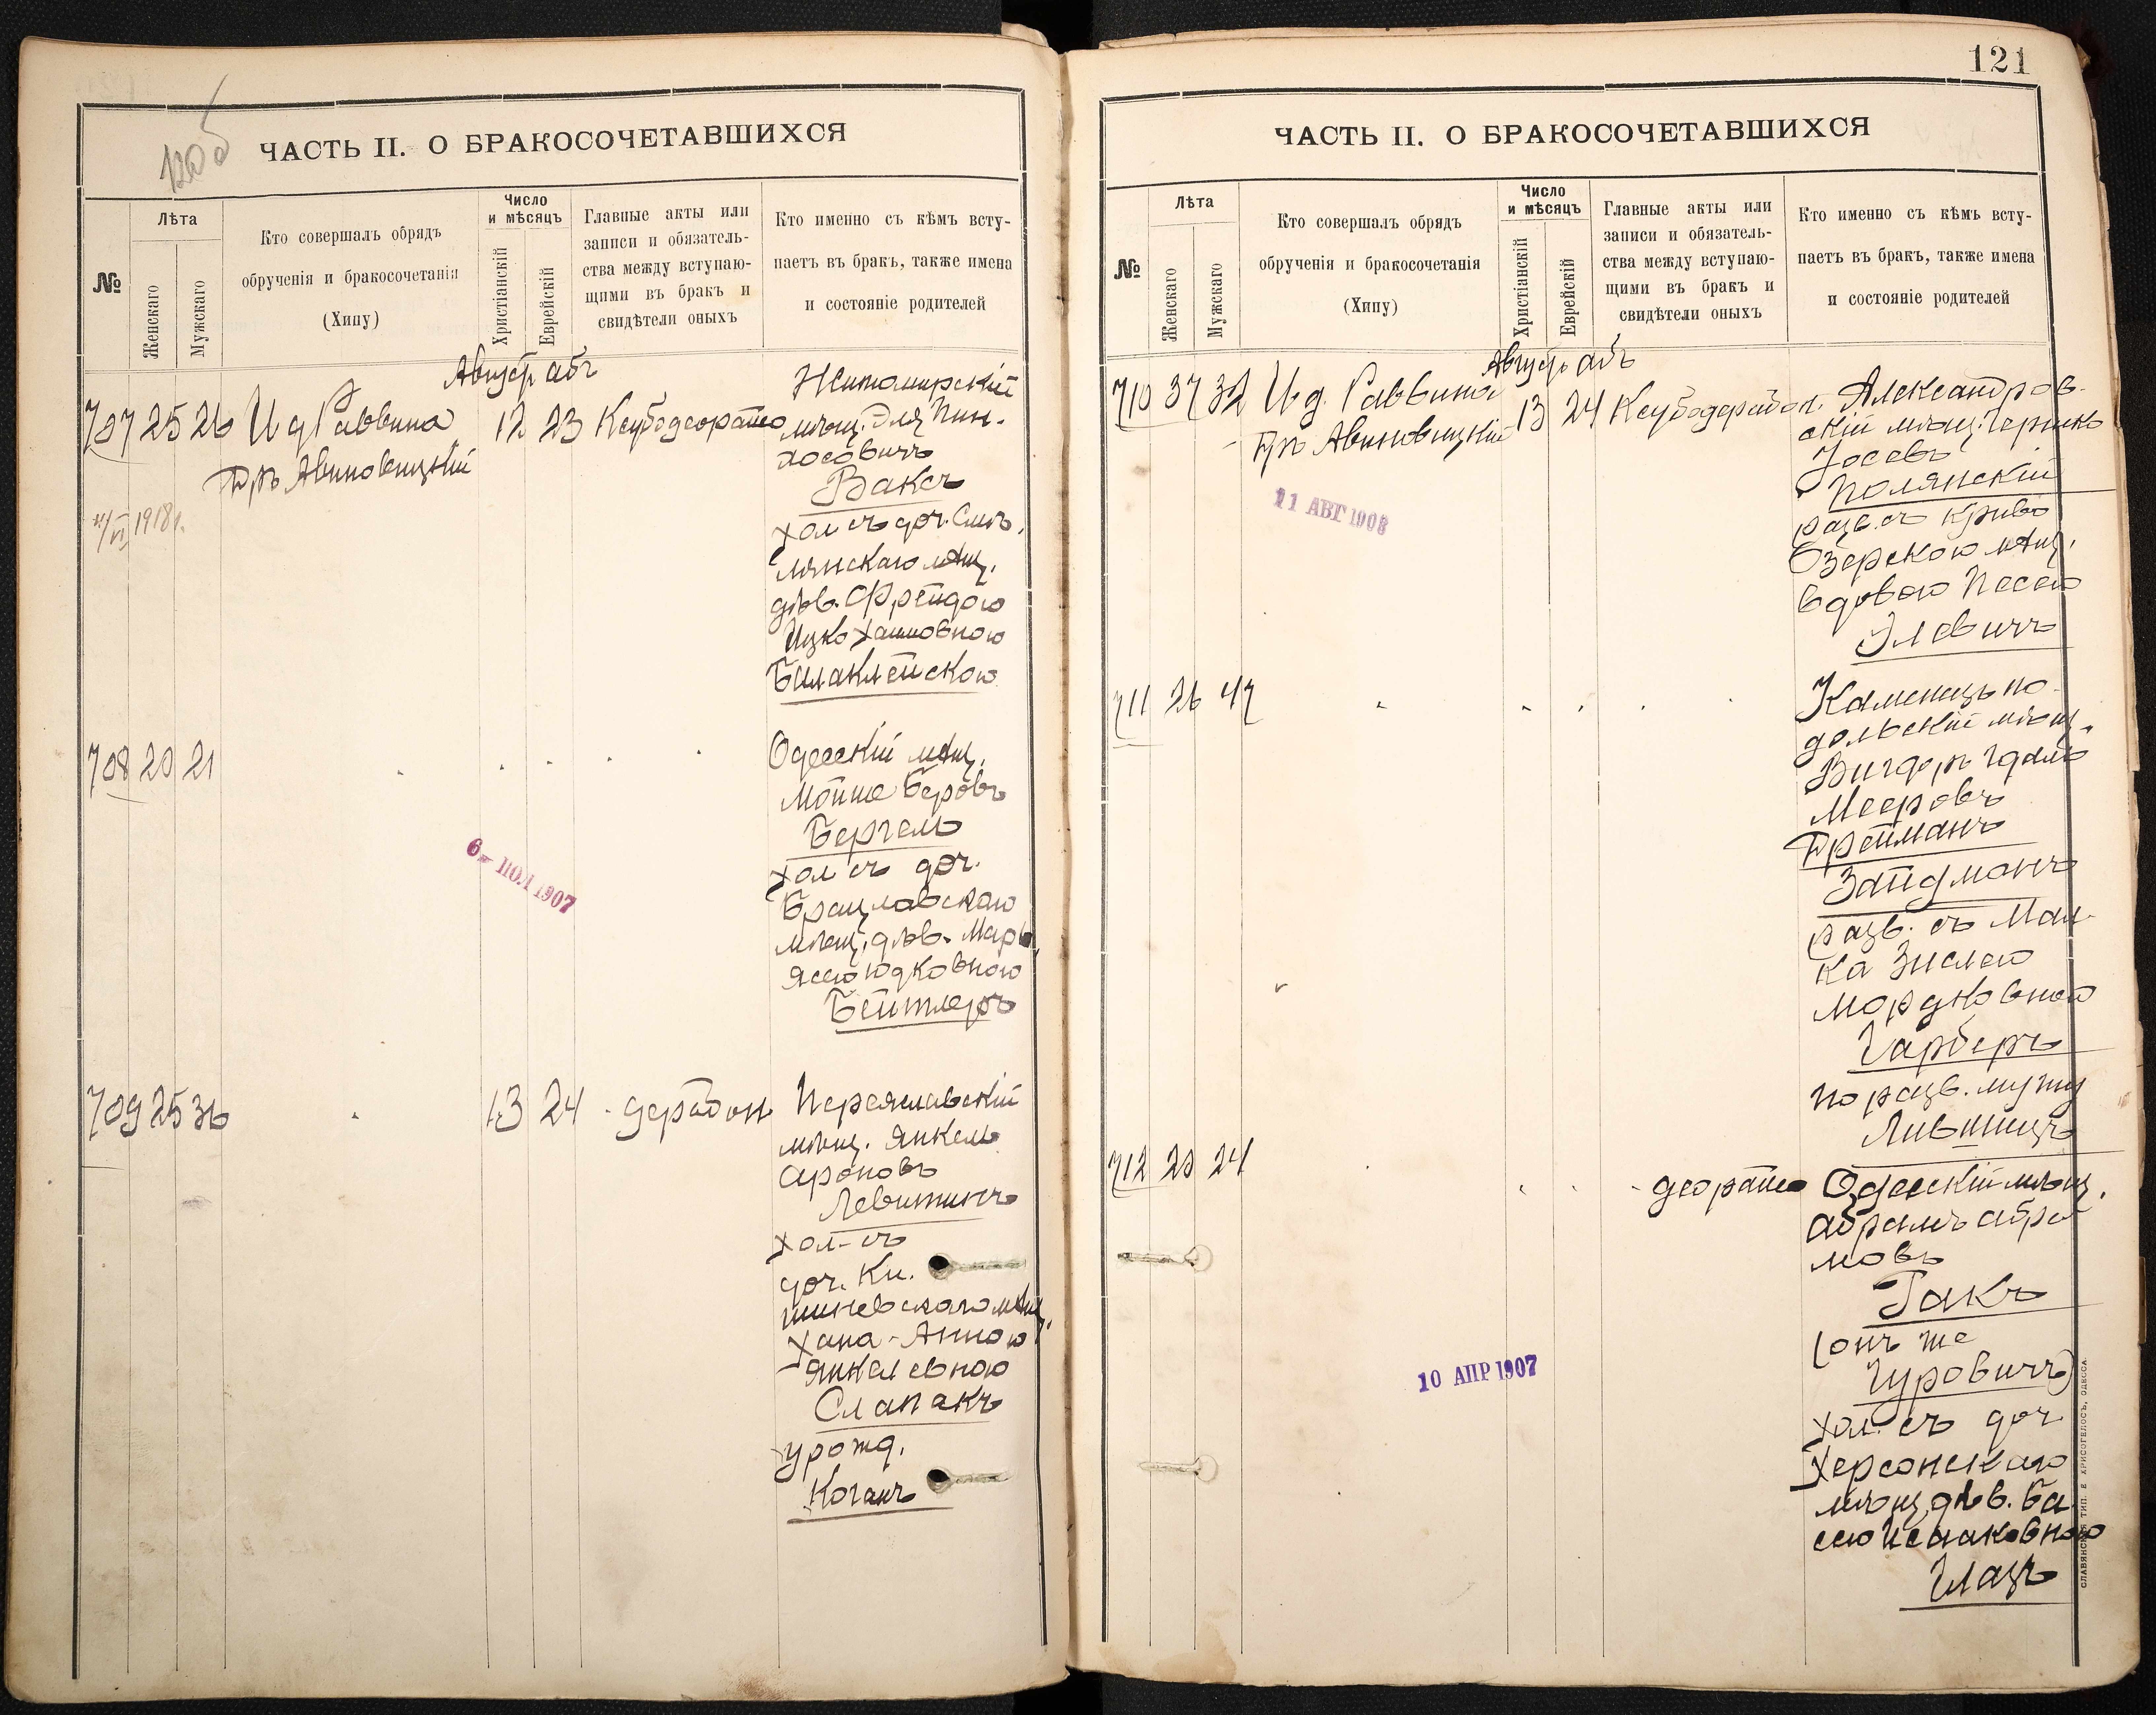 120б
ЧАСТЬ II. О БРАКОСОЧЕТАВШИХСЯ
№
Лѣта
Женскаго
Мужскаго
Кто совершалъ обрядъ
обрученія и бракосочетанія
(Хипу)
Число
и мѣсяцъ
Христіанскій
Еврейскій
Главные акты или
записи и обязатель-
ства между вступаю-
щими въ бракъ и
свидѣтели оныхъ
Кто именно съ кѣмъ всту-
паетъ въ бракъ, также имена
и состояніе родителей
Август абъ
707 25 26 И д Раввина 12 23
Авиновицкій
1918г.
Житомирскій
мѣщ. Эля Пин-
хосовичъ
Ваксъ
хол съ доч. Смѣ
лянскаго мѣщ.
дѣв. Фрейдою
Ицко Хаимовною
Балаклейскою
708 20 21
Одесскій мѣщ.
Мойше Беровъ
Бергель
хол съ доч.
Брацлавскаго
мѣщ. дѣв. Марь
ясею Юдковною
Бейтлеръ
6- ІЮЛ 1907
709 25 36 13 24
Переяславскій
мѣщ. Янкель
Ароновъ
Левитинъ
хол-съ
доч. Ки.
шиневскаго мѣщ.
Хана-Анною
Янкелевною
Слапакъ
урожд.
Коганъ
121
ЧАСТЬ II. О БРАКОСОЧЕТАВШИХСЯ
№
Лѣта
Женскаго
Мужскаго
Кто совершалъ обрядъ
обрученія и бракосочетанія
(Хипу)
Число
и мѣсяцъ
Христіанскій
Еврейскій
Главные акты или
записи и обязатель-
ства между вступаю-
щими въ бракъ и
свидѣтели оныхъ
Кто именно съ кѣмъ всту-
паетъ въ бракъ, также имена
и состояніе родителей
Август абъ
710 37 32 И д. Раввина 13 24
Авиновицкій
11 АВГ 1908
Александров-
скій мѣщ. Гершко
Іосевъ
Полянскій
разв. съ Криво
Озерскою мѣщ.
вдовою Песею
Элевичъ
711 26 47
Каменецъ по-
дольскій мѣщ.
Вигдоръ Гдаль
Мееровъ
Фрейманъ
Зайдманъ
разв. съ Мал-
ка Зислею
Мордковною
Гарберъ
по разв. мужу
Лившицъ
712 20 24
Одесскій мѣщ.
Абрамъ Абра
мовъ
Гакъ
(онъ же
Гуровичъ)
хол. съ доч
Херсонскаго
мѣщ дѣв. Ба
сею Исааковною
Глазъ
10 АПР 1907
СЛАВЯНСКАЯ ТИП. Е ХРИСОГЕЛОСЪ, ОДЕССА.